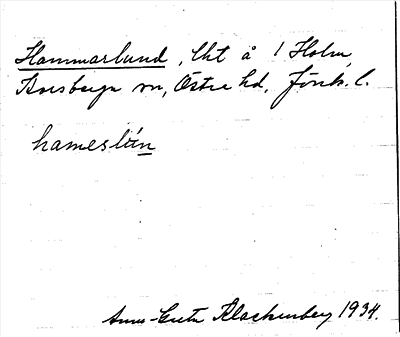 Hammarlund, lht å 1 Holm,
Korsberga sn, Östra hd, Jönk. l.
hameslùn
Anna-Greta Klackenberg 1934.